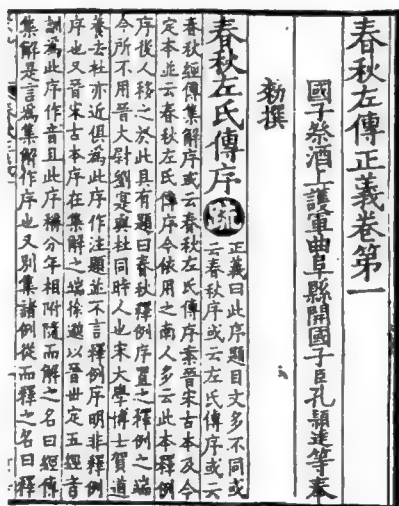 春秋左傳正義卷第一
國子祭酒上護軍曲阜縣開國子臣孔穎達等奉
勑撰
春秋左氏傳序 疏 正義曰此序題目文多不同或
云春秋序或云左氏傳序或云
春秋經傳集解序或云春秋左氏傳序案晉宋古本及今
定本並云春秋左氏傳序今依用之南人多云此本釋例
序後人移之於此且有題曰春秋釋例序置之釋例之端
今所不用晉大尉劉寔與杜同時人也宋大學博士賀道
養去杜亦近俱為此序作注題並不言釋例序明非釋例
序也又晉宋古本序在集解之端徐邈以晉世定五經音
訓為此序作音且此序稱分年相附隨而解之名曰經傳
集解是言為集解作序也又別集諸例從而釋之名曰釋